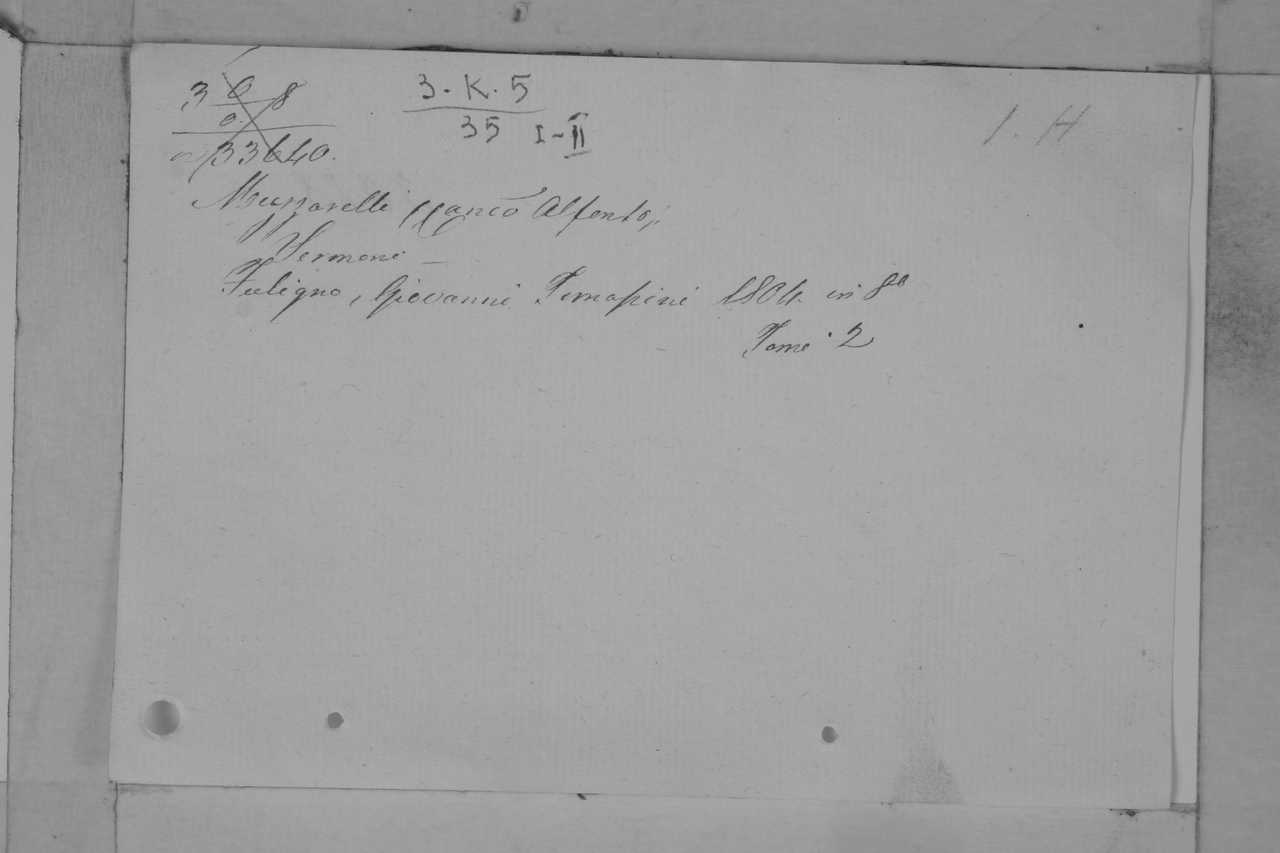 3 0 8
0
33640.
3. K. 5
35 I-II
1. H
Muzzarelli Alfonso,
Sermoni
Foligno, Giovanni Tomassini 1804. in 8º
Tomi 2